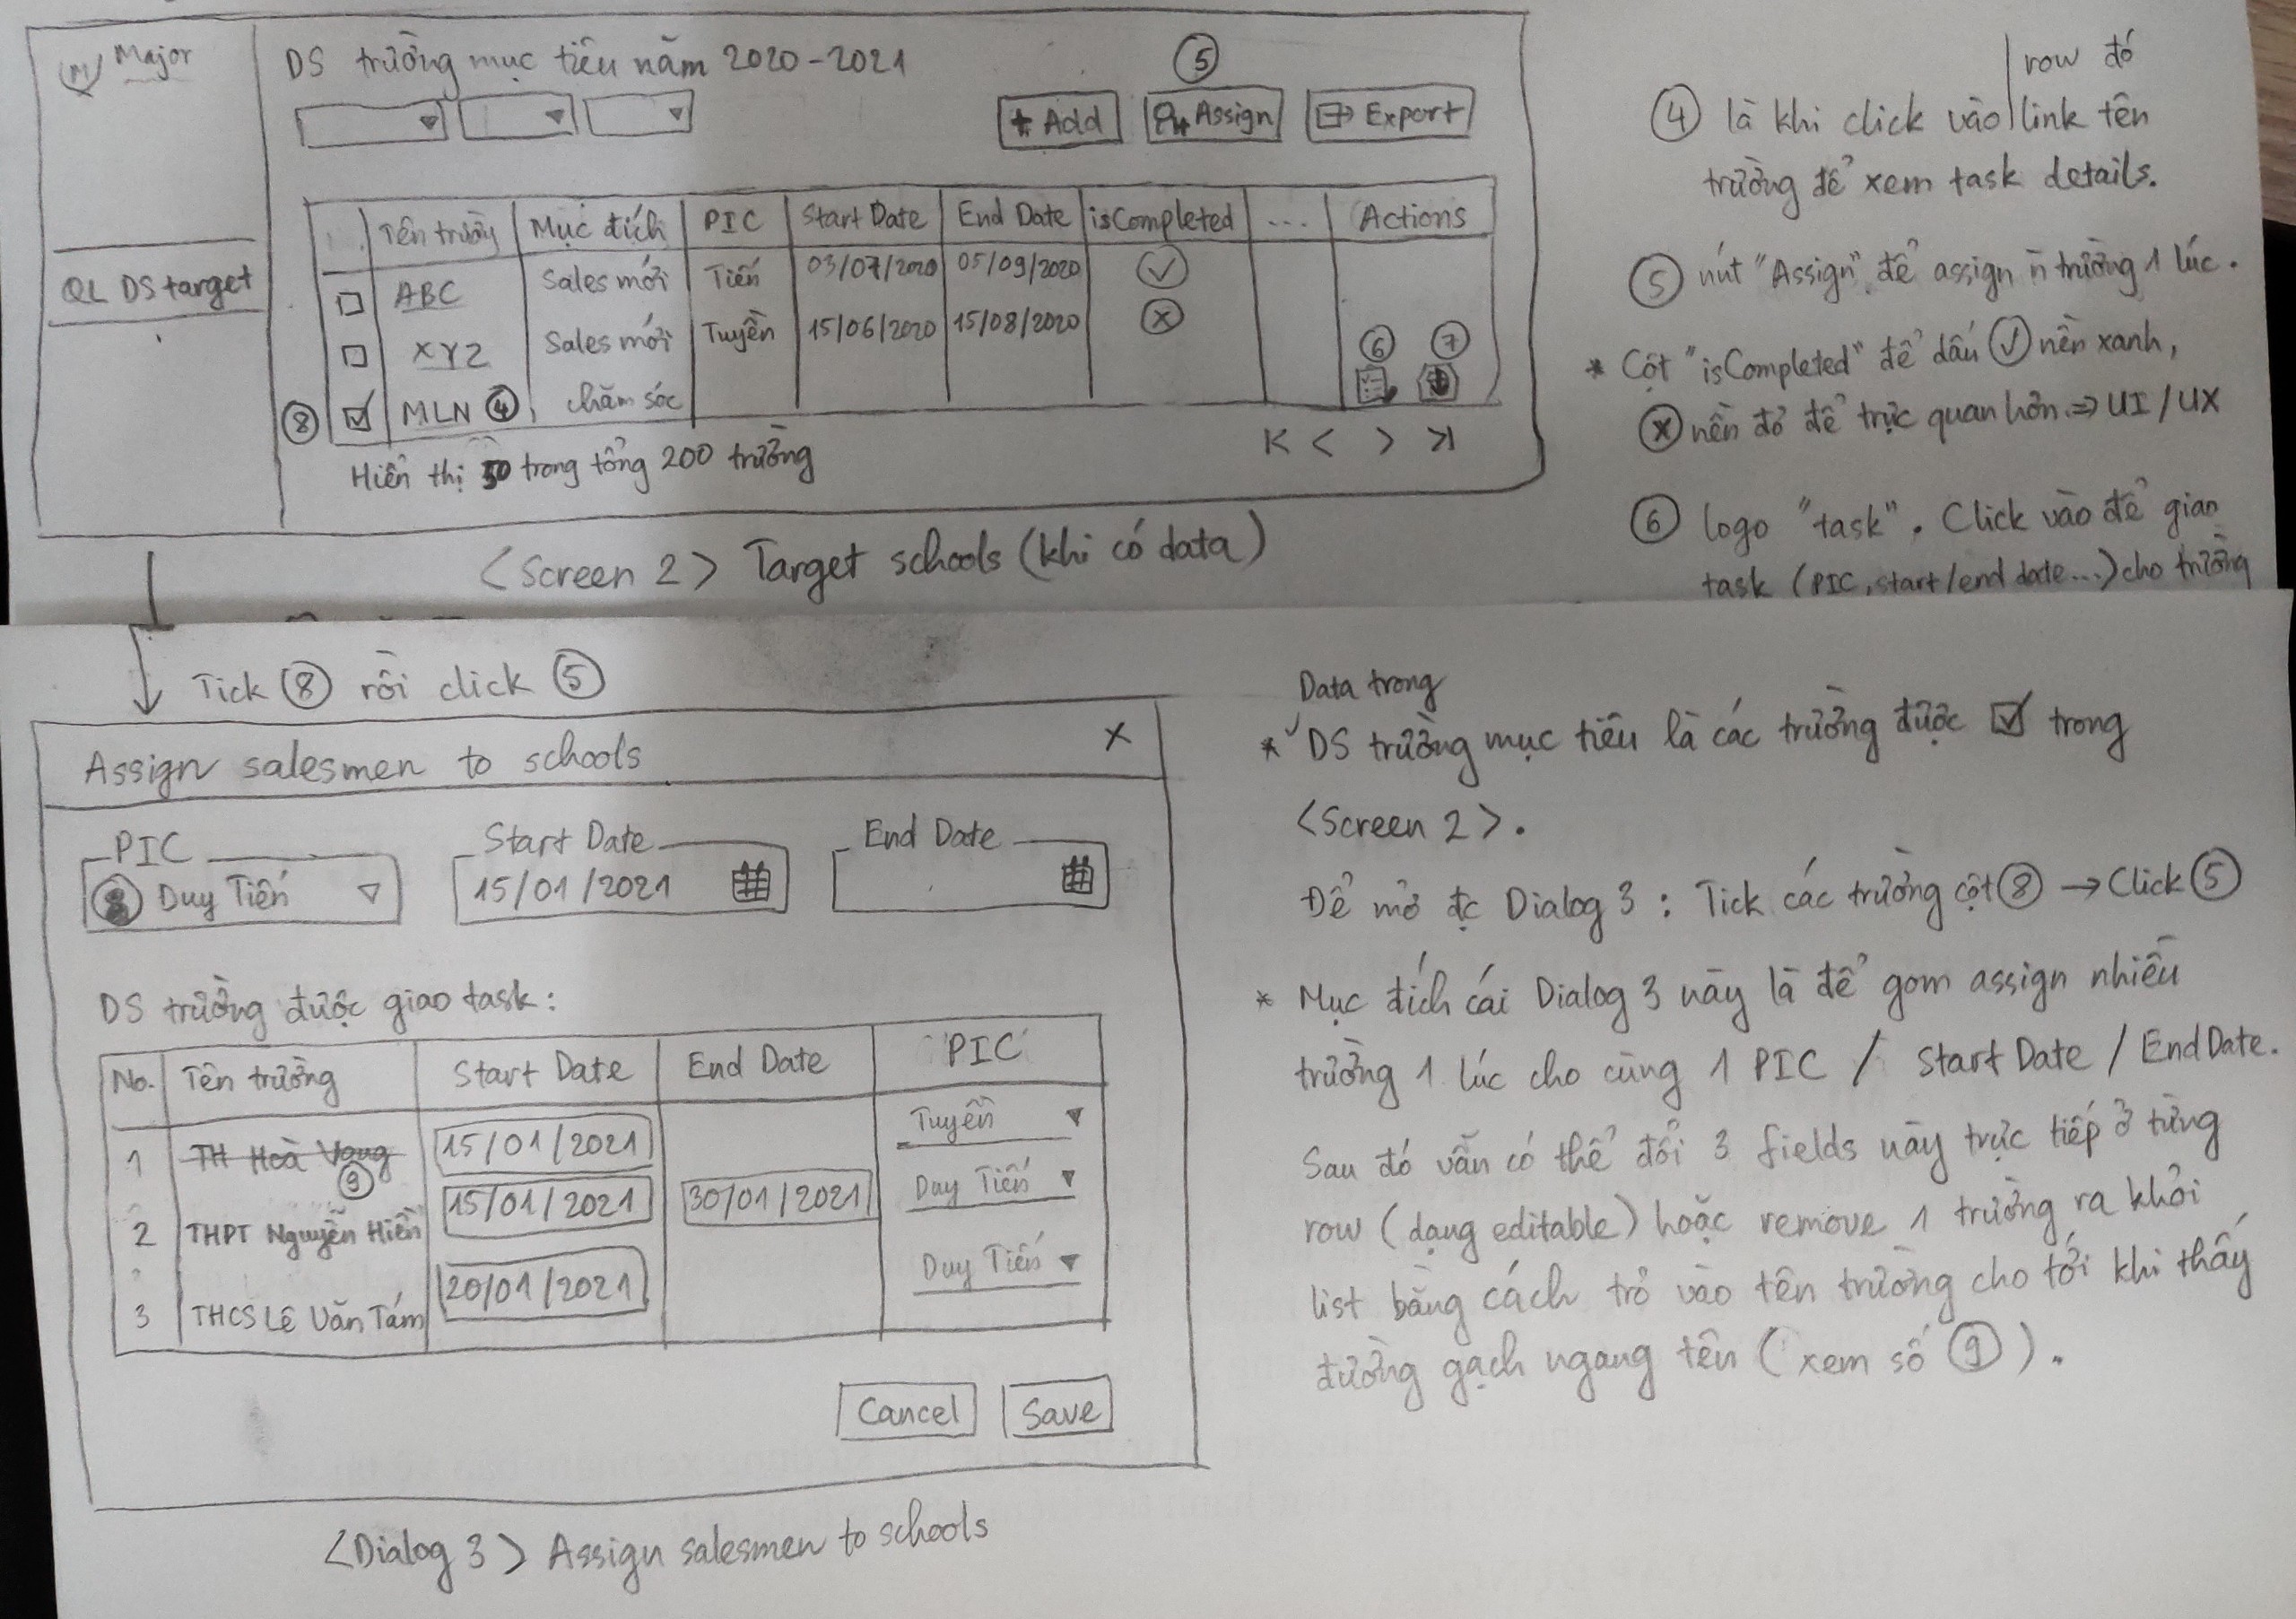 Major
DS trường mục tiêu năm 2020-2021
5
+ Add
Assign
Export
QL DS target
Tên trường Mục đích PIC Start Date End Date isCompleted ... Actions
ABC Sales mới Tiến 03/07/2020 05/09/2020
XYZ Sales mới Tuyền 15/06/2020 15/08/2020
6 7
8 MLN 4 chăm sóc
Hiển thị 50 trong tổng 200 trường
K < > >|
<Screen 2> Target schools (khi có data)
row đó
4 là khi click vào link tên
trường để xem task details.
5 nút "Assign" để assign n trường 1 lúc.
* Cột "isCompleted" để dấu ✓ nền xanh,
x nền đỏ để trực quan hơn. => UI / UX
6 logo "task". Click vào để giao
task (PIC, start/end date...) cho trường
Tick 8 rồi click 5
Assign salesmen to schools X
PIC Start Date End Date
Duy Tiến 15/01/2021
DS trường được giao task:
No. Tên trường Start Date End Date PIC
1 TH Hoà Vang 15/01/2021 Tuyền
9
2 THPT Nguyễn Hiền 15/01/2021 30/01/2021 Duy Tiến
3 THCS Lê Văn Tám 20/01/2021 Duy Tiến
Cancel Save
<Dialog 3> Assign salesmen to schools
Data trong
* DS trường mục tiêu là các trường được ☑ trong
<Screen 2>.
Để mở đc Dialog 3 : Tick các trường cột 8 → Click 5
* Mục đích cái Dialog 3 này là để gom assign nhiều
trường 1 lúc cho cùng 1 PIC / Start Date / End Date.
Sau đó vẫn có thể đổi 3 fields này trực tiếp ở từng
row (dạng editable) hoặc remove 1 trường ra khỏi
list bằng cách trỏ vào tên trường cho tới khi thấy
đường gạch ngang tên (xem số 9).